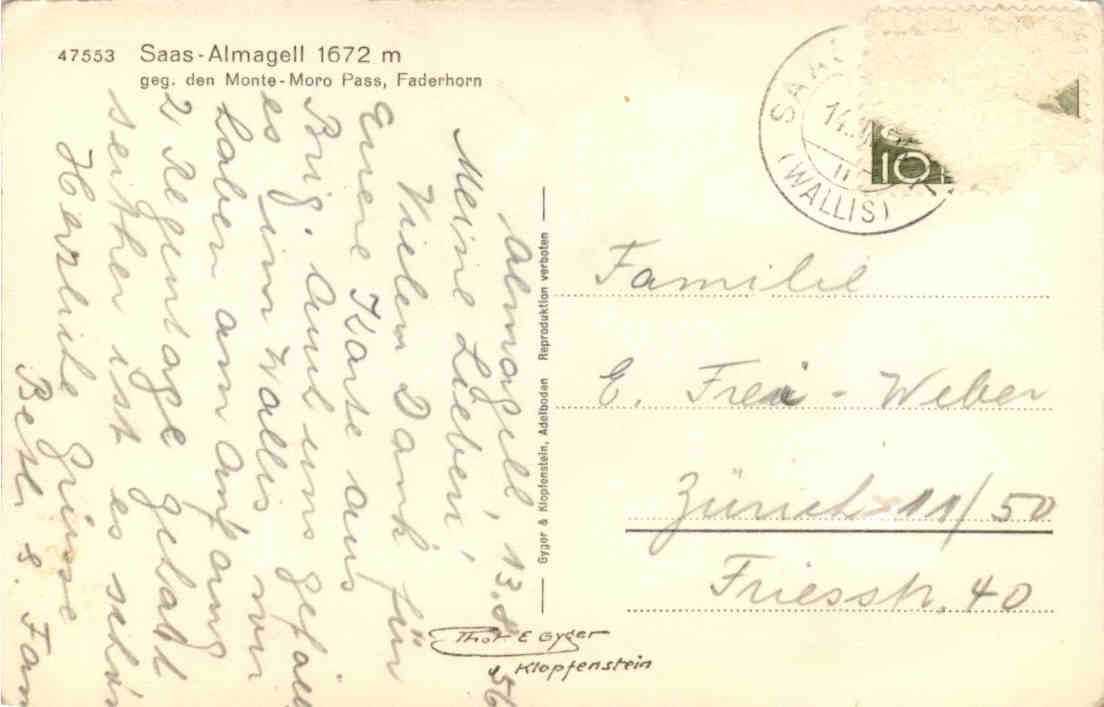 47553 Saas-Almagell 1672 m
geg. den Monte-Moro Pass, Faderhorn
Almagell, 13.8.56
Meine Lieben!
Vielen Dank für
Euere Karte aus
Brig. Auch uns gefällt
es im Wallis nur
haben am Anfang
2 Regentage gehabt
seither ist es schön
Herzliche Grüsse
Betli & Fam
Gyger & Klopfenstein, Adelboden Reproduktion verboten
Phot. E Gyger
& Klopfenstein
(WALLIS)
10
Familie
E. Frei - Weber
Zürich 11/50
Friesstr. 40